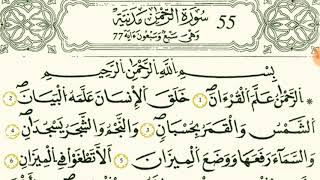 سُورَةُ الرَّحْمَٰنِ مَدَنِيَّة 55
وَهِيَ سَبْعٌ وَسَبْعُونَ ءَايَة 77
بِسْمِ اللَّهِ الرَّحْمَٰنِ الرَّحِيمِ
الرَّحْمَٰنُ عَلَّمَ الْقُرْءَانَ 1 خَلَقَ الْإِنسَانَ عَلَّمَهُ الْبَيَانَ 2
الشَّمْسُ وَالْقَمَرُ بِحُسْبَانٍ 3 وَالنَّجْمُ وَالشَّجَرُ يَسْجُدَانِ 4
وَالسَّمَاءَ رَفَعَهَا وَوَضَعَ الْمِيزَانَ 5 أَلَّا تَطْغَوْا فِي الْمِيزَانِ 6